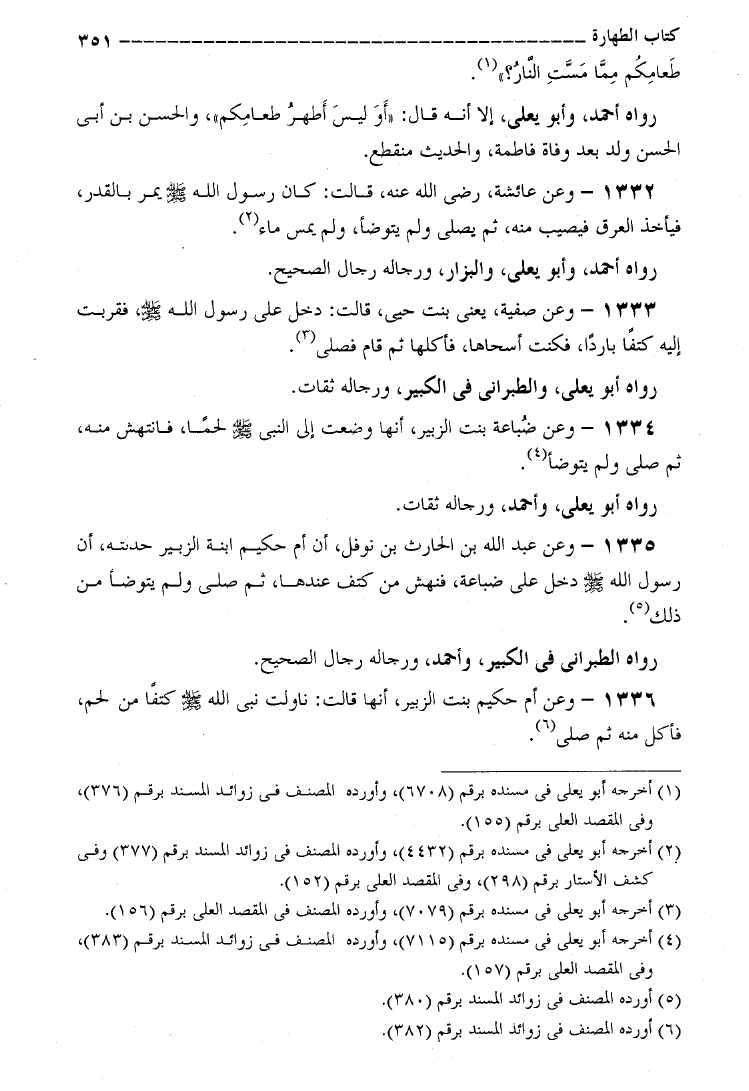 كتاب الطهارة ــــــــــــــــــــــــــــــــــــــــــــــــ ٣٥١
طَعامِكُم مِمَّا مَسَّتِ النَّارُ؟»(١).
رواه أحمد، وأبو يعلى، إلا أنه قال: «أَوَ ليسَ أَطهرُ طعامِكم»، والحسن بن أبى
الحسن ولد بعد وفاة فاطمة، والحديث منقطع.
١٣٣٢ – وعن عائشة، رضى الله عنه، قالت: كان رسول الله ﷺ يمر بالقدر،
فيأخذ العرق فيصيب منه، ثم يصلى ولم يتوضأ، ولم يمس ماء(٢).
رواه أحمد، وأبو يعلى، والبزار، ورجاله رجال الصحيح.
١٣٣٣ – وعن صفية، يعنى بنت حيى، قالت: دخل على رسول الله ﷺ، فقربت
إليه كتفًا باردًا، فكنت أسحاها، فأكلها ثم قام فصلى(٣).
رواه أبو يعلى، والطبرانى فى الكبير، ورجاله ثقات.
١٣٣٤ – وعن ضُباعة بنت الزبير، أنها وضعت إلى النبى ﷺ لحمًا، فانتهش منه،
ثم صلى ولم يتوضأ(٤).
رواه أبو يعلى، وأحمد، ورجاله ثقات.
١٣٣٥ – وعن عبد الله بن الحارث بن نوفل، أن أم حكيم ابنة الزبير حدثته، أن
رسول الله ﷺ دخل على ضباعة، فنهش من كتف عندها، ثم صلى ولم يتوضأ من
ذلك(٥).
رواه الطبرانى فى الكبير، وأحمد، ورجاله رجال الصحيح.
١٣٣٦ – وعن أم حكيم بنت الزبير، أنها قالت: ناولت نبى الله ﷺ كتفًا من لحم،
فأكل منه ثم صلى(٦).
(١) أخرجه أبو يعلى فى مسنده برقم (٦٧٠٨)، وأورده المصنف فى زوائد المسند برقم (٣٧٦)،
وفى المقصد العلى برقم (١٥٥).
(٢) أخرجه أبو يعلى فى مسنده برقم (٤٤٣٢)، وأورده المصنف فى زوائد المسند برقم (٣٧٧) وفى
كشف الأستار برقم (٢٩٨)، وفى المقصد العلى برقم (١٥٢).
(٣) أخرجه أبو يعلى فى مسنده برقم (٧٠٧٩)، وأورده المصنف فى المقصد العلى برقم (١٥٦).
(٤) أخرجه أبو يعلى فى مسنده برقم (٧١١٥)، وأورده المصنف فى زوائد المسند برقم (٣٨٣)،
وفى المقصد العلى برقم (١٥٧).
(٥) أورده المصنف فى زوائد المسند برقم (٣٨٠).
(٦) أورده المصنف فى زوائد المسند برقم (٣٨٢).